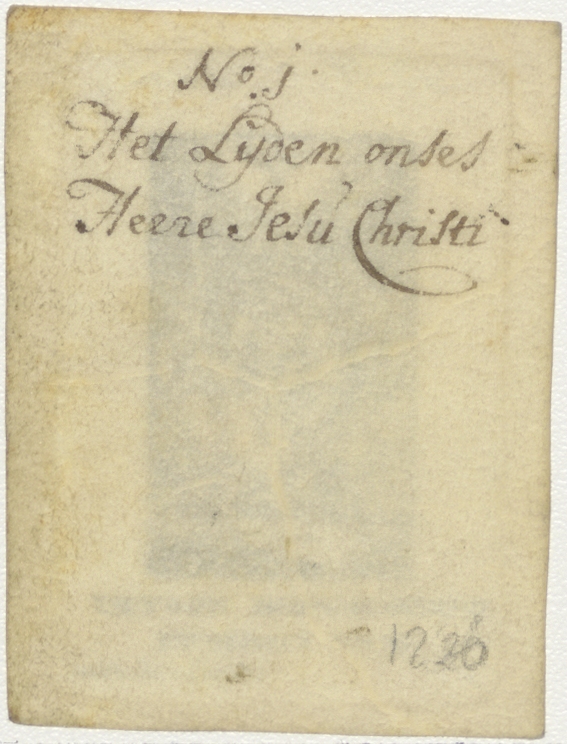 No. j.
Het Lijden onses
Heere Jesu Christi